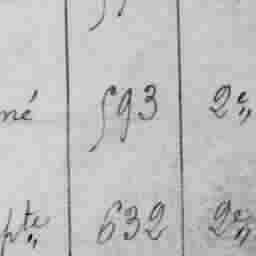 né 593 2e„
pte„ 632 2e„